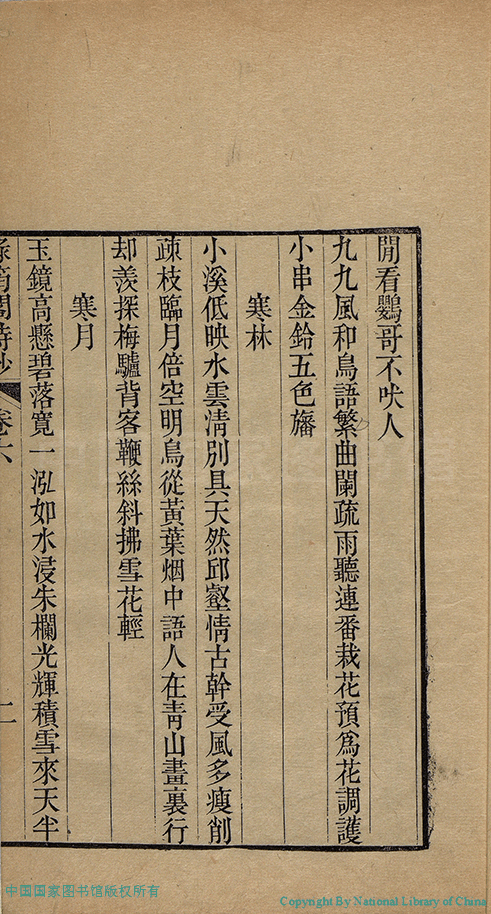 閒看鸚哥不㕭人
九九風和鳥語繁曲闌疏雨聽連番栽花預爲花調護
小串金鈴五色旛
寒林
小溪低映水雲淸別具天然邱壑情古幹受風多瘦削
疎枝臨月倍空明鳥從黃葉烟中語人在靑山畫裏行
却羨探梅驢背客鞭絲斜拂雪花輕
寒月
玉鏡高懸碧落寬一泓如水浸朱欄光輝積雪來天半
卷六
二
中国国家图书馆版权所有
Copyright By National Library of China